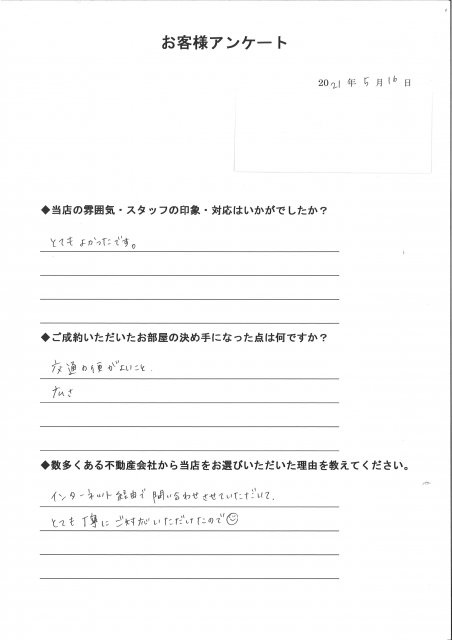 お客様アンケート
2021年5月16日
◆当店の雰囲気・スタッフの印象・対応はいかがでしたか？
とてもよかったです。
◆ご成約いただいたお部屋の決め手になった点は何ですか？
交通の便がよいこと.
広さ
◆数多くある不動産会社から当店をお選びいただいた理由を教えてください。
インターネット経由で問い合わせさせていただいて、
とても丁寧にご対応いただけたので☺